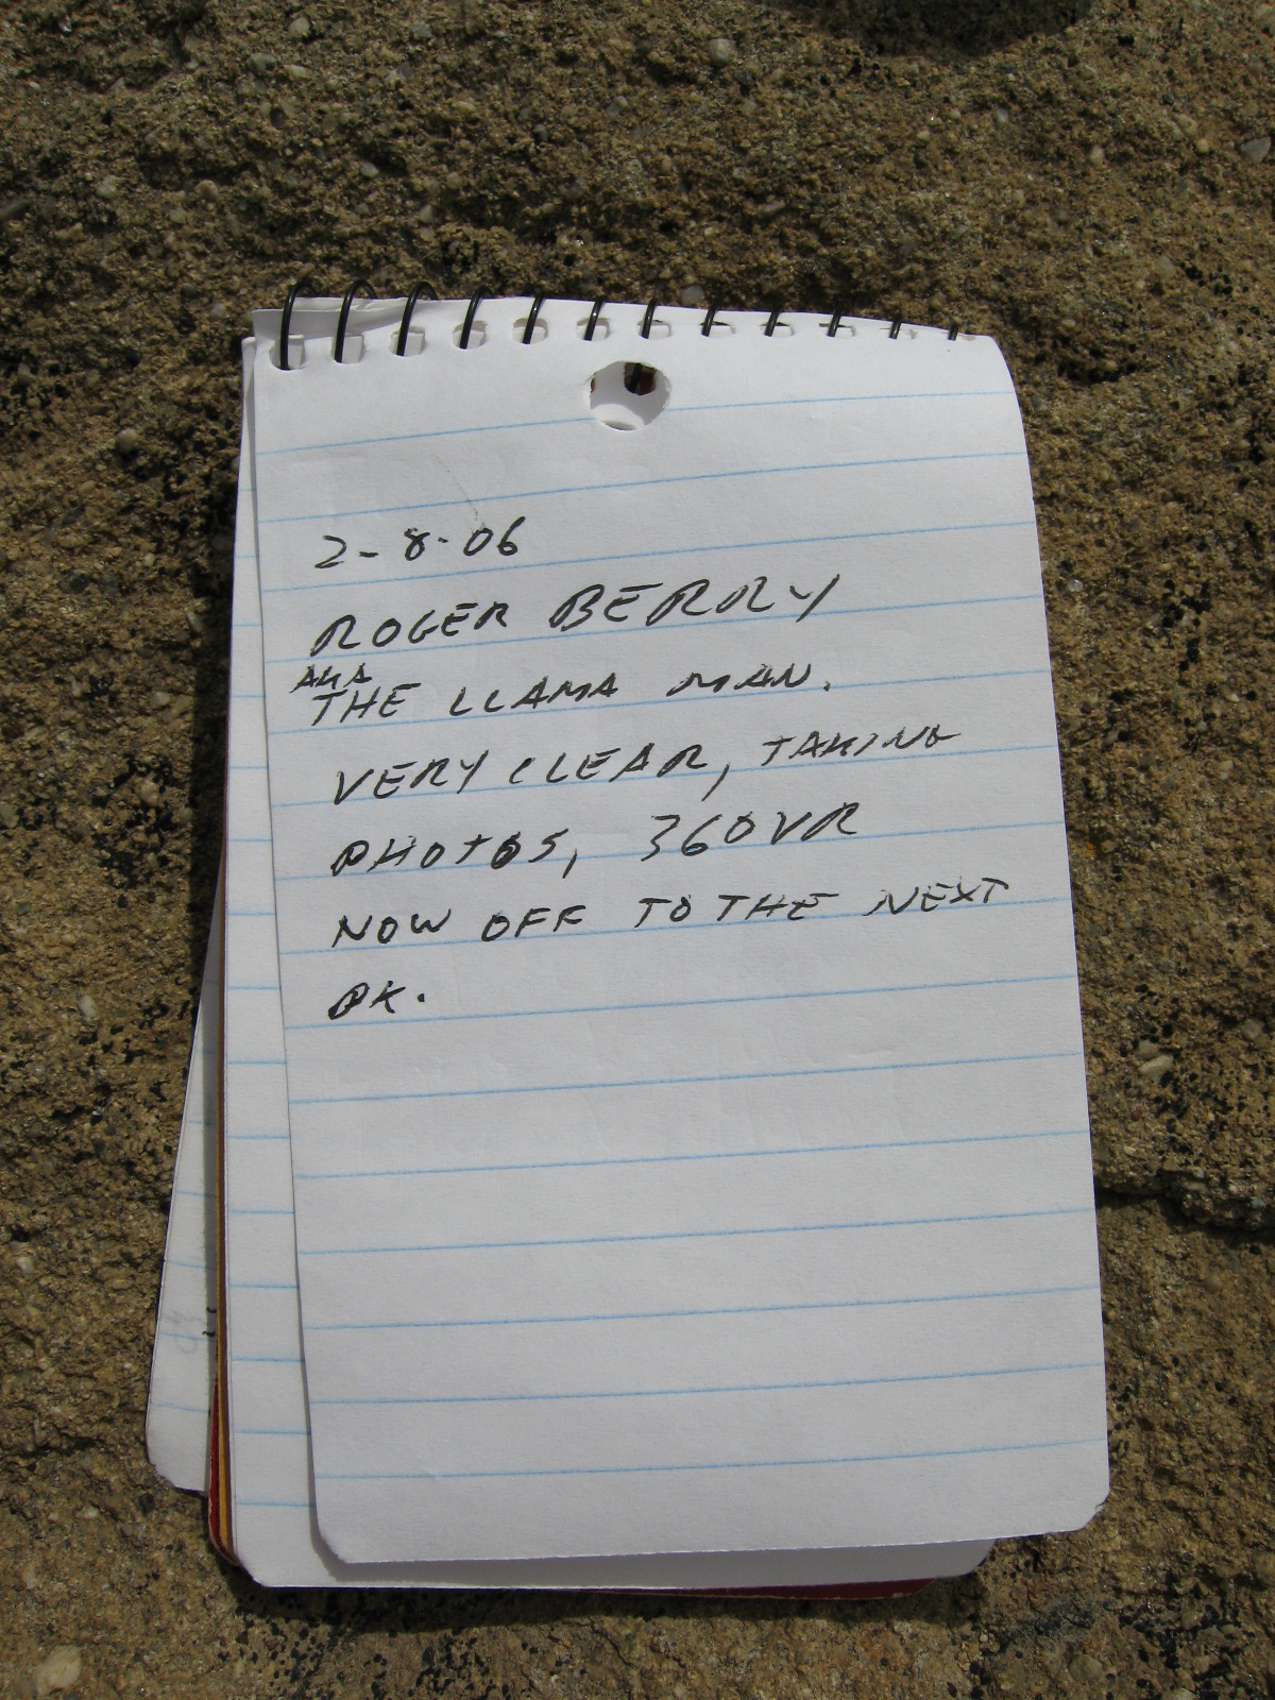 2-8-06
ROGER BERRY
AKA
THE LLAMA MAN.
VERY CLEAR, TAKING
PHOTOS, 360VR
NOW OFF TO THE NEXT
PK.